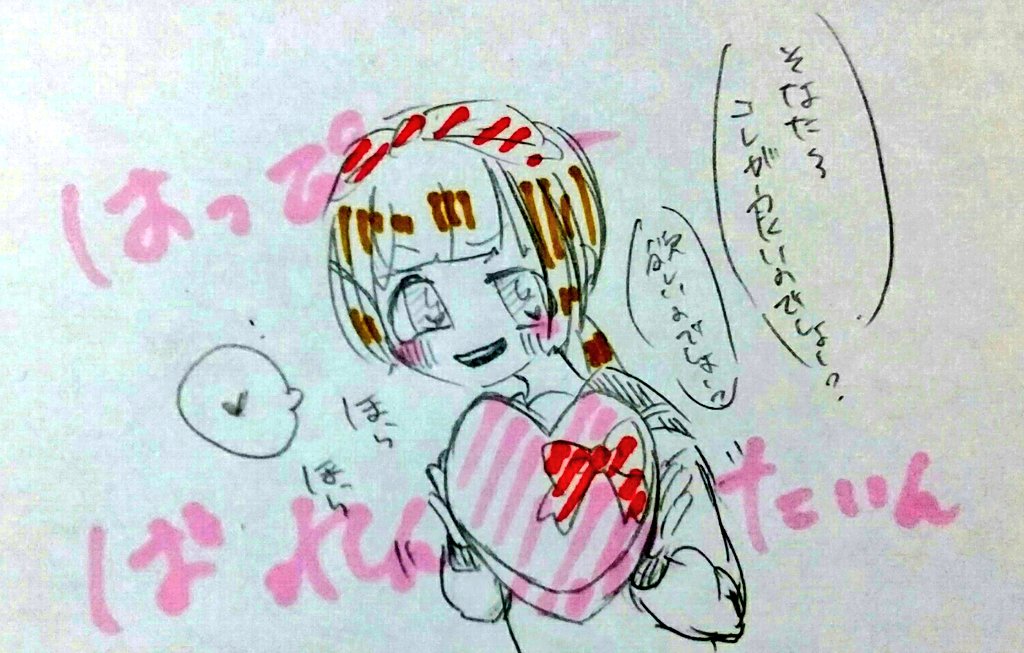 はっぴー
ばれんたいん
そなた、
コレが欲しいのでしょう?
欲しいのでしょう?
ほら
ほら